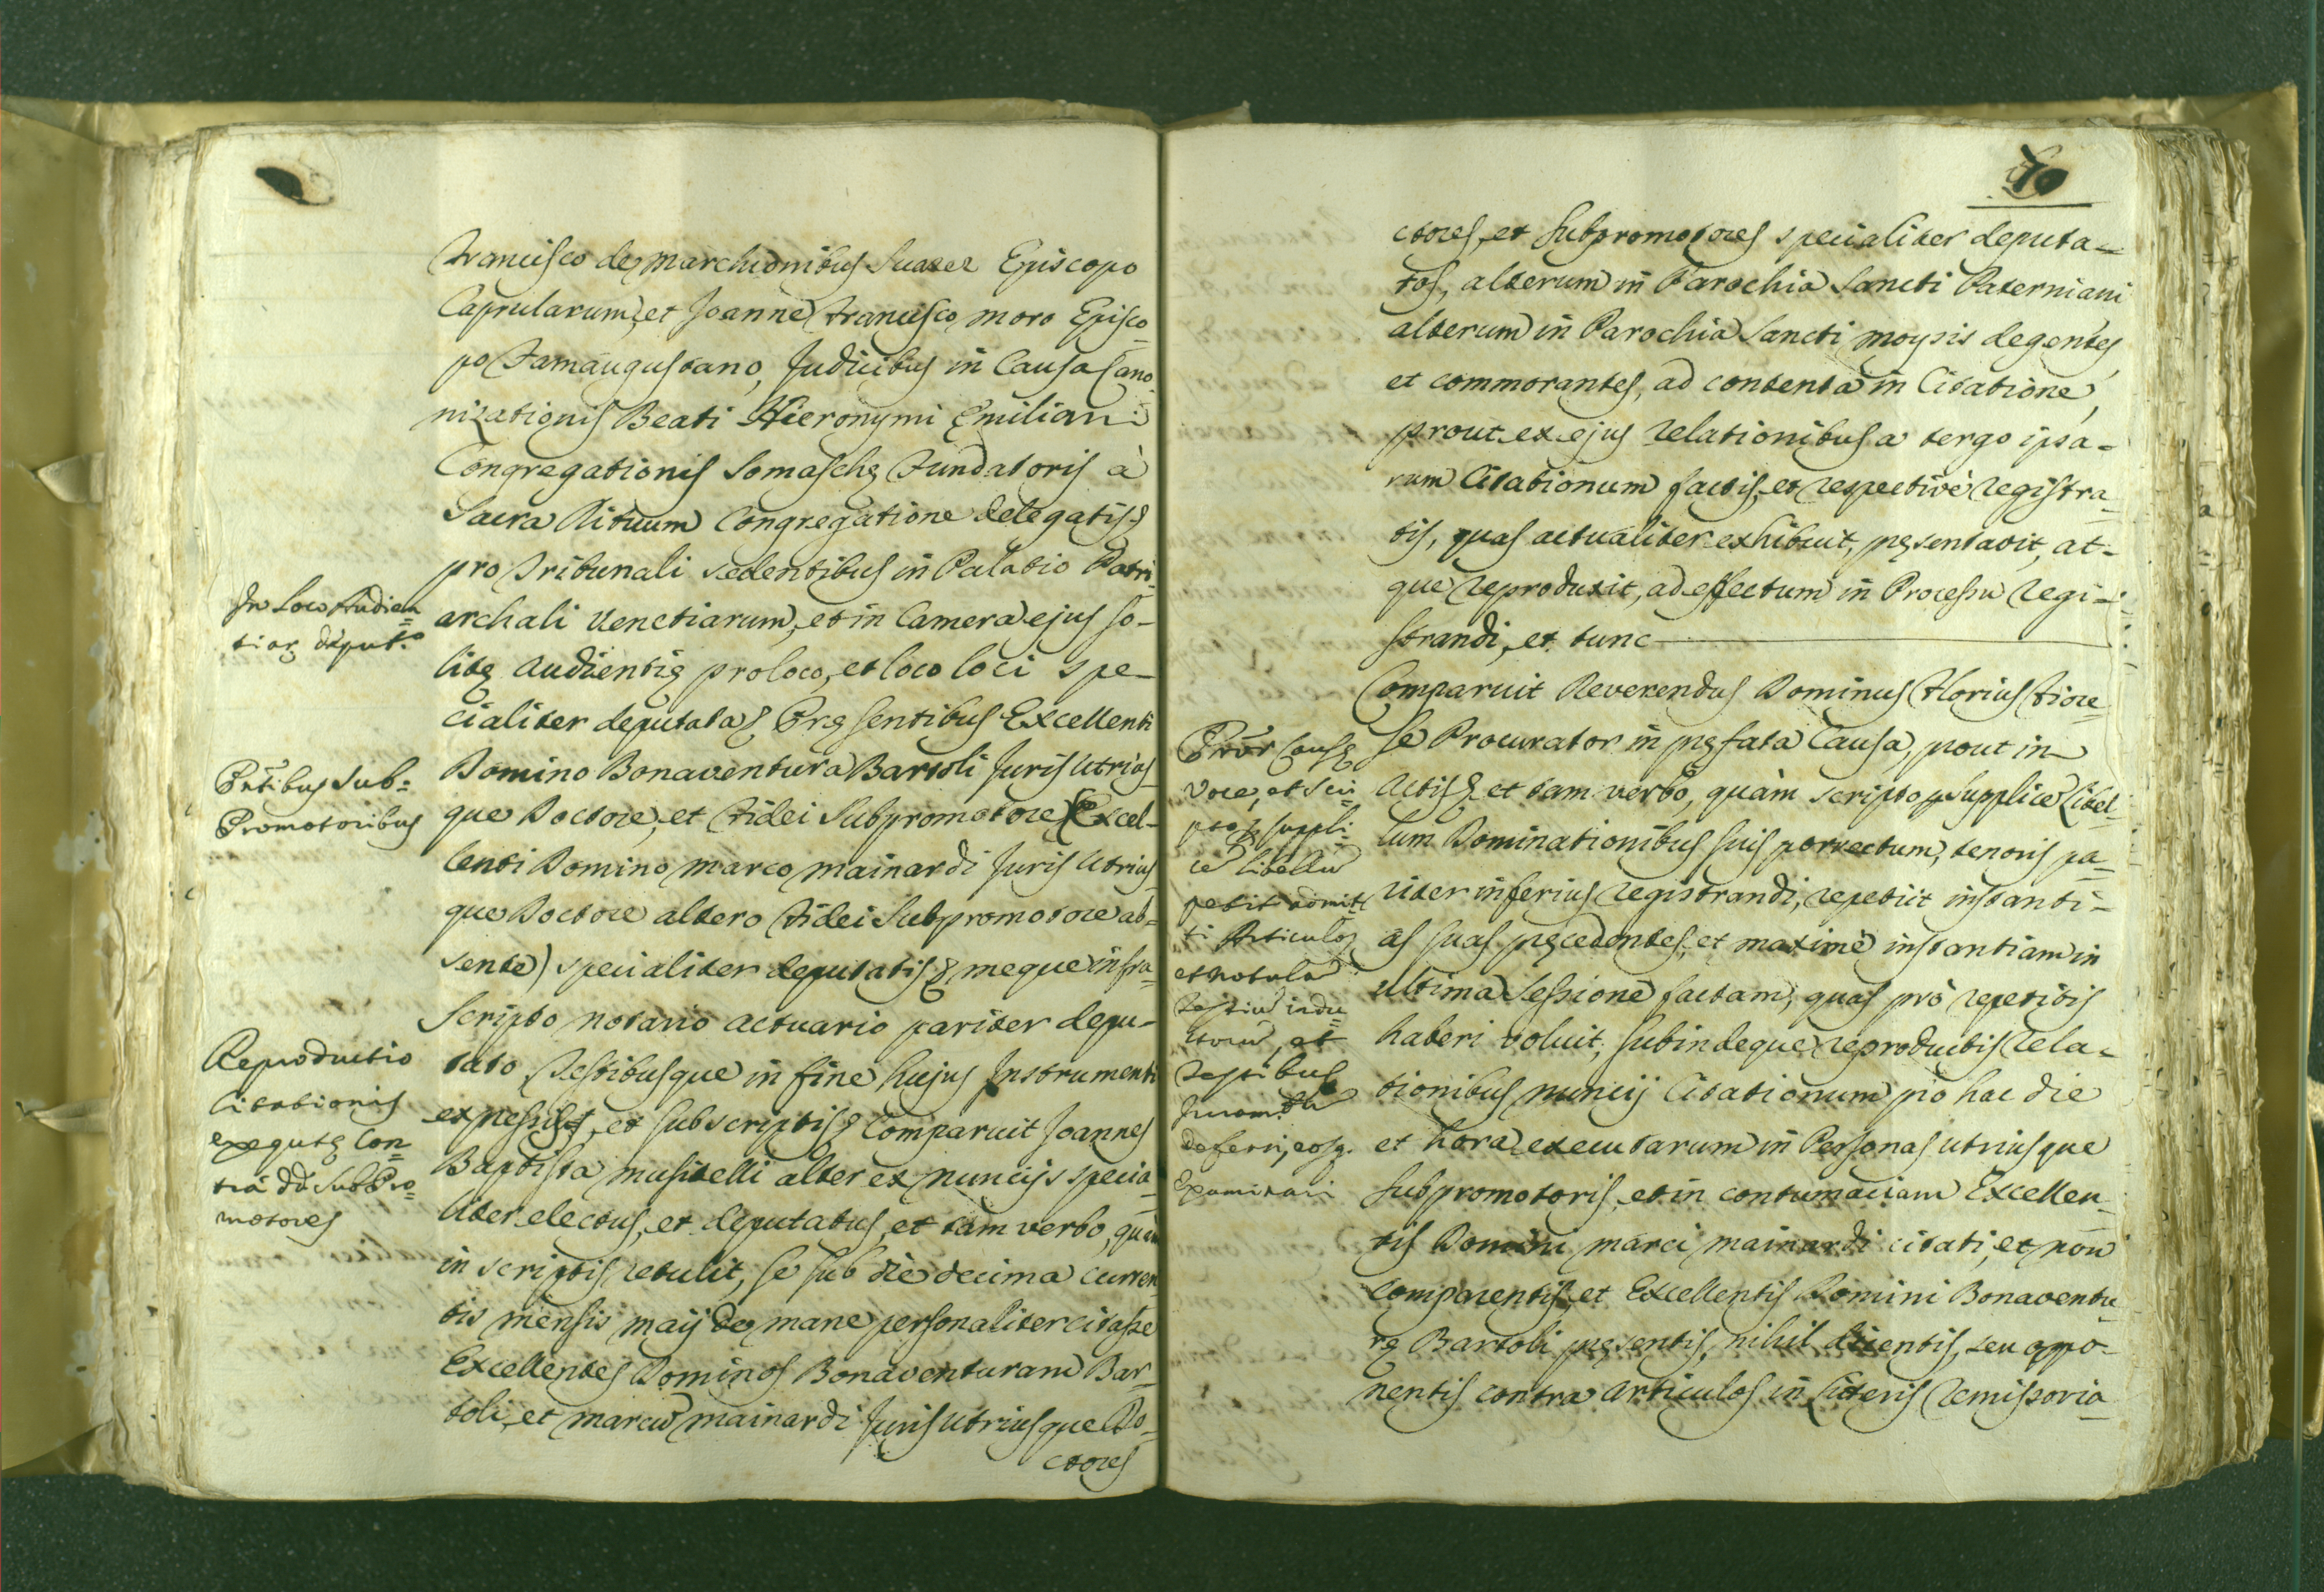 Francisco de Marchionibus Suarez Episcopo
Caprularum, et Joanne Francisco Moro Episco
po Famaugustano, Judicibus in Causa Cano
nizationis Beati Hieronymi Emiliani
Congregationis Somaschę Fundatoris à
Sacra Rituum Congregatione delegatis
pro Tribunali sedentibus in Palatio Patri
archali Venetiarum, et in Camera ejus so-
litę audientię pro loco, et loco loci spe-
cialiter deputata Pręsentibus Excellenti
Domino Bonaventura Bartoli Juris Utrius
que Doctore, et Fidei Subpromotore (Excel-
lenti Domino Marco Mainardi Juris Utrius
que Doctore altero Fidei Subpromotore ab-
sente) specialiter deputatis meque infra
scripto Notario Actuario pariter depu-
tato Testibusque in fine hujus Instrumenti
expressis, et subscriptis Comparuit Joannes
Baptista Musitelli alter ex nuncijs specia
liter electus, et deputatus, et tam verbo, quam
in scriptis retulit, se sub die decima curren
tis mensis Maij de mane personaliter citasse
Excellentes Dominos Bonaventuram Bar-
toli, et Marcũ Mainardi Juris Utriusque Do-
ctores
In Loco Audien
tiæ deput.ᵒ
Pñtibus Sub-
Promotoribus
Reproductio
Citationis
exequtę Con
tra dd. SubPro
motores
70
ctores, et Subpromotores specialiter deputa-
tos, alterum in Parochia Sancti Paterniani
alterum in Parochia Sancti Moysis degentes,
et commorantes, ad contenta in Citatione,
prout ex ejus relationibus a tergo ipsa-
rum Citationum factis, et respectivè registra
tis, quas actualiter exhibuit, pręsentavit, at-
que reproduxit, ad effectum in Processu regi-
strandi, et tunc
Comparuit Reverendus Dominus Florius Fiore
se Procurator in pręfata Causa, prout in
Actis et tam verbo, quàm scripto p supplicẽ Libel
lum Dominationibus suis porrectum, tenoris pa
riter inferius registrandi, repetijt instanti-
as suas pręcedentes, et maximè instantiam in
ultima Sessione factam, quas prò repetitis
haberi voluit, subindeque reproductis Rela-
tionibus nuncij Citationum pro hac die
et hora executarum in Personas utriusque
Subpromotoris, et in contumaciam Excellen
tis Domini Marci Mainardi citati, et non
comparentis, et Excellentis Domini Bonaventu
rę Bartoli pręsentis, nihil dicentis, seu oppo-
nentis contra Articulos in Literis Remissoria
Prõr Causę
voce, et scri
pto p suppli
cẽ libellũ
petit admit
ti Articulos
et Notulã
Testiũ indu
ctorũ, et
Testibus
Juramtũ
deferri, eosq.
Examinari